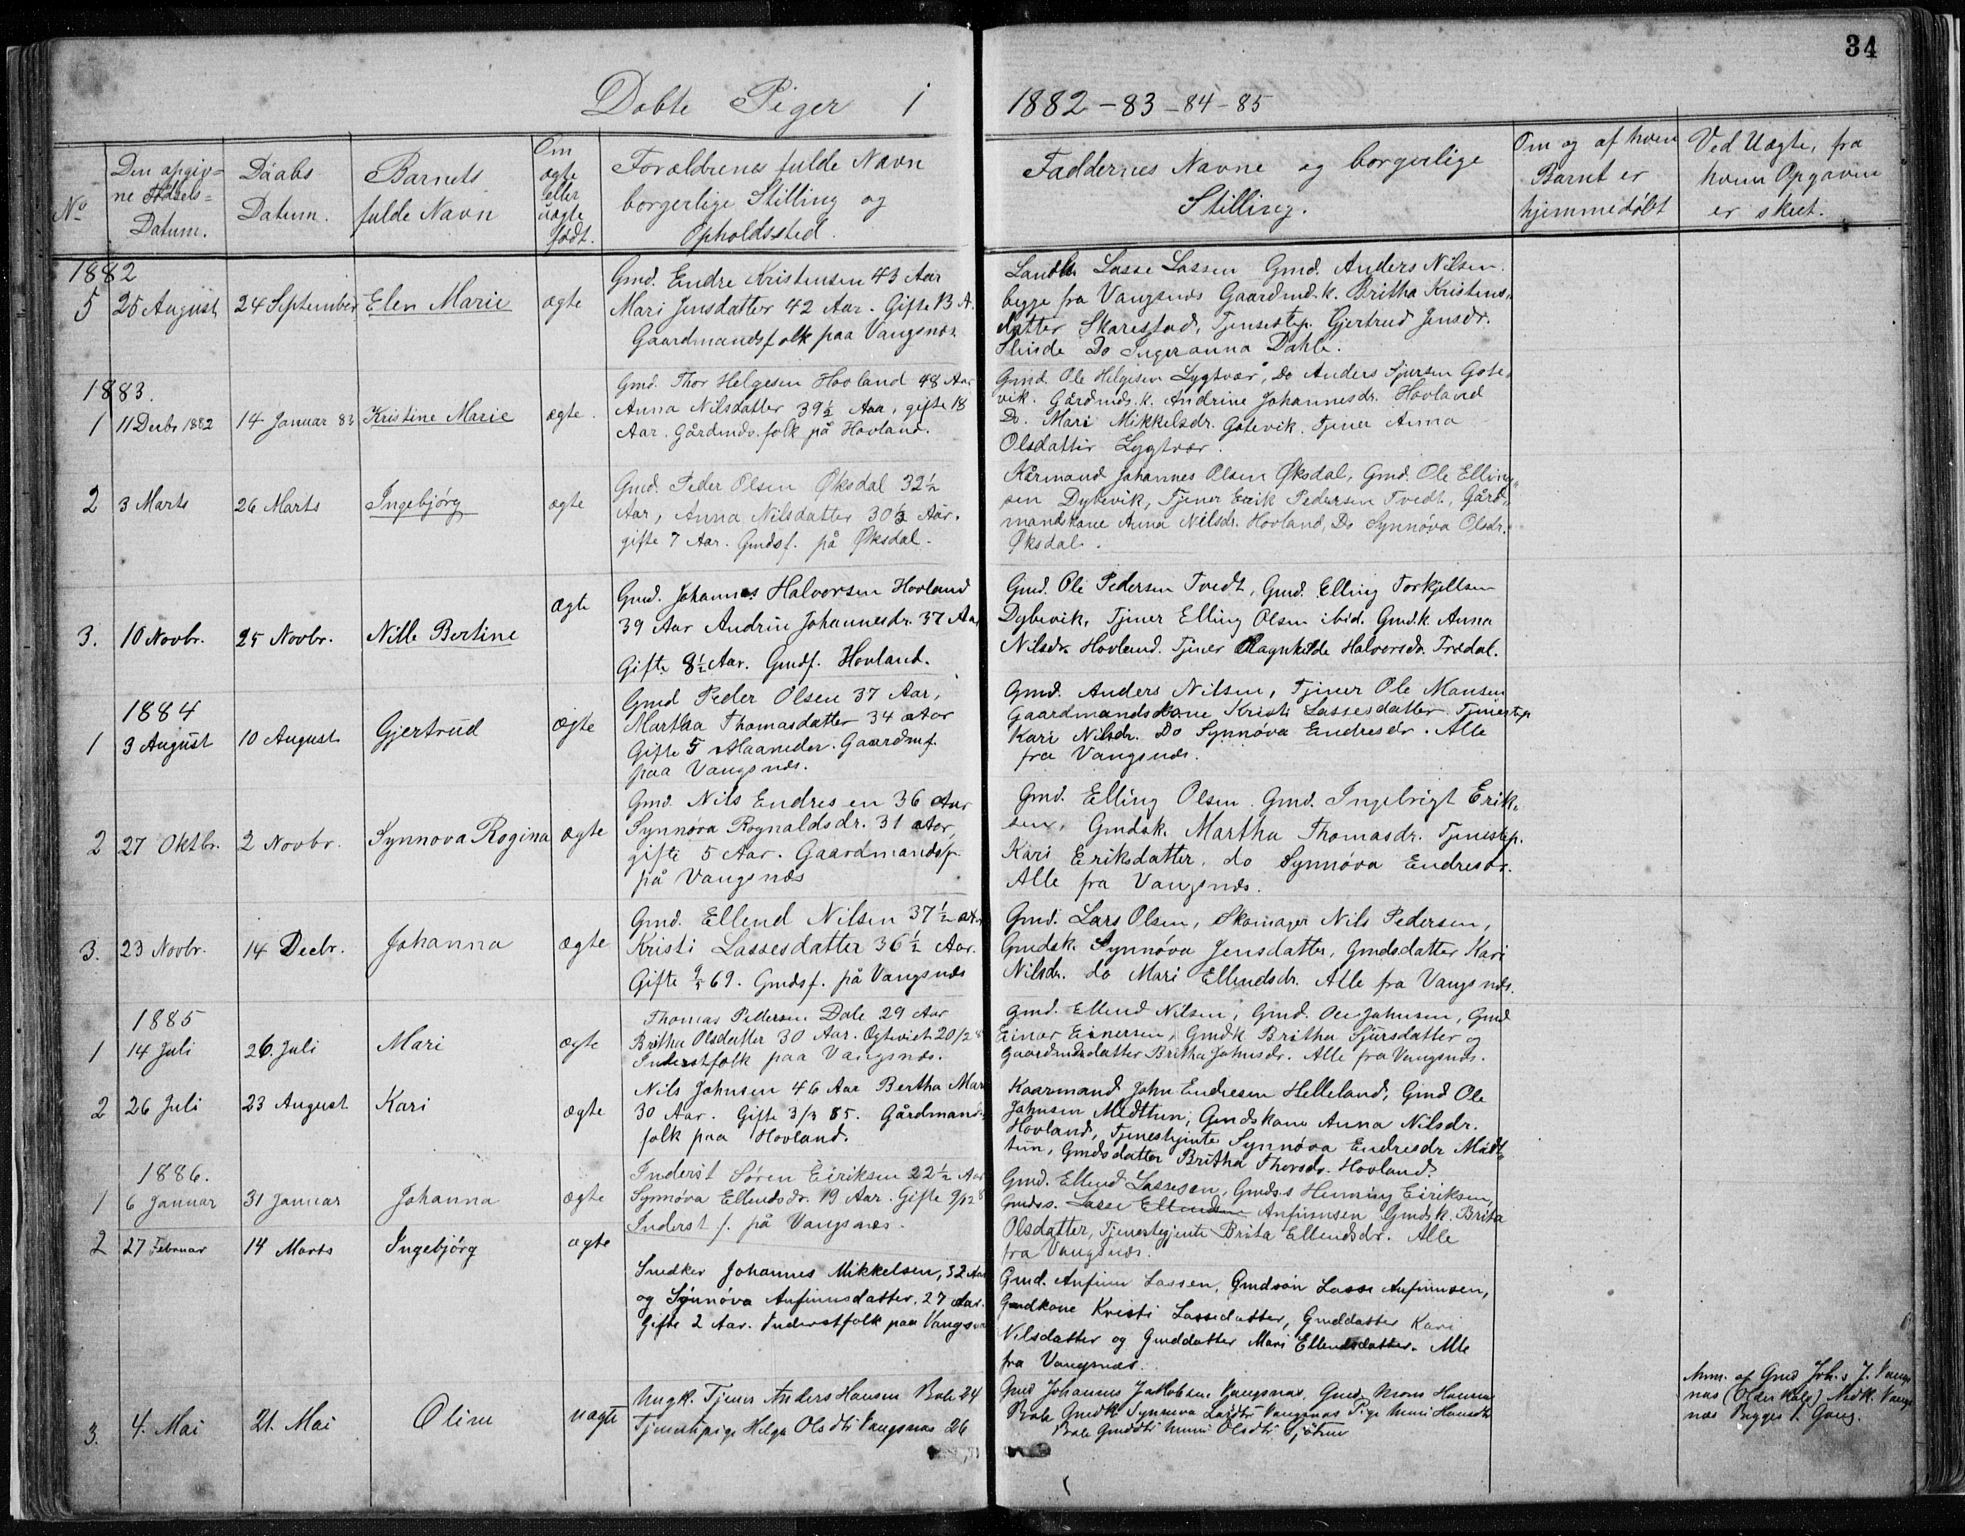 34
Døbte Piger i 1882 - 83 - 84 - 85
No
Den opgiv=
ne Fødsels=
Datum.
Daabs
Datum.
Barnets
fulde Navn
Om
ægte
eller
uægte
født.
Forældrenes fulde Navn
borgerlige Stilling og
Opholdssted.
Faddernes Navne og borgerlige
Stilling.
Om og af hvem
Barnet er
hjemmedøbt
Ved Uægte, fra
hvem Opgaven
er skeet.
1882
5 25 August 24 September Elen Marie ægte
Gmd. Endre Kristensen 43 Aar
Mari Jensdatter 42 Aar. Gifte 13 A.
Gaardmandsfolk paa Vangsnæs
Lasse Lassen Gmd. Anders Nilsen.
begge fra Vangsnæs Gaardmd.k. Britha Kristens
datter Skarestad, Tjenestep. Gjertrud Jensdr.
Slinde Do Ingeranna Dahle.
1883.
1 11 Decbr 1882 14 Januar 83 Kristine Marie ægte.
Gmd. Thor Helgesen Hovland 48 Aar
Anna Nilsdatter 39½ Aar, gifte 18
Aar. Gårdmds.folk på Hovland.
Gmd. Ole Helgesen Lygtvær, Do Anders Sjursen Gote
vik. Gårdmds.k. Andrine Johannesdr. Hovland
Do. Mari Mikkelsdr. Gotevik. Tjener Anna
Olsdatter Lygtvær.
2 3 Marts 26 Marts Ingebjörg ægte
Gmd. Peder Olsen Øksdal 32½
Aar, Anna Nilsdatter 30½ Aar.
gifte 7 Aar. Gmdsf. på Øksdal.
Kårmand Johannes Olsen Øksdal, Gmd. Ole Elling
sen Dybevik, Tjener Erik Pedersen Tvedt, Gård
mandskone Anna Nilsdr. Hovland, Do Synnøva Olsdr.
Øksdal.
3. 10 Novbr. 25 Novbr. Nille Bertine Ægte
Gmd. Johannes Halvorsen Hovland
39 Aar Andrine Johannesdr. 37 Aar
Gifte 8½ Aar. Gmdf. Hovland.
Gmd. Ole Pedersen Tvedt, Gmd. Elling Torkjellsen
Dybevik, Tjener Elling Olsen ibid. Gmd.k Anna
Nilsdr. Hovland. Tjener Ragnhilde Halvorsdr. Trædal.
1884
1 3 August 10 August Gjertrud ægte
Gmd Peder Olsen 37 Aar,
Martha Thomasdatter 34 Aar
Gifte 5 Maaneder. Gaardmf.
paa Vangsnæs.
Gmd. Anders Nilsen, Tjener Ole Monsen
Gaardmandskone Kristi Lassesdatter. Tjenestep
Kari Nilsdr. Do Synnøva Endresdr. Alle
fra Vangsnæs.
2 27 Oktbr. 2 Novbr. Synnova Rogina ægte
Gmd. Nils Endresen 36 Aar
Synnøva Rognaldsdr. 31 Aar,
gifte 5 Aar. Gaardmandsf.
på Vangsnæs
Gmd. Elling Olsen. Gmd. Ingebrigt Erik
sen, Gmdsk. Martha Thomasdr. Tjenestep.
Kari Eriksdatter, do Synnøva Endresdr.
Alle fra Vangsnæs.
3. 23 Novbr. 14 Decbr. Johanna ægte
Gmd. Ellend Nilsen 37½ Aar
Kristi Lassesdatter 36½ Aar.
Gifte 9/5 69. Gmdsf. på Vangsnæs
Gmd. Lars Olsen, Skomager Nils Pedersen,
Gmdsk. Synnøva Jensdatter, Gmdsdatter Kari
Nilsdr. do Mari Ellendsdr. Alle fra Vangsnæs.
1885
1 14 Juli 26. Juli Mari ægte
Thomas Pedersen Dale 29 Aar
Britha Olsdatter 30 Aar. Ægteviet 20/2 8
Inderstfolk paa Vangsnæs.
Gmd. Ellend Nilsen, Gmd. Ole Johnsen, Gmd
Einar Einersen, Gmdk Britha Sjursdatter og
Gaardmdsdatter Britha Johnsdr. Alle fra Vangsnæs.
2 26 Juli 23 August Kari ægte
Nils Johnsen 46 Aar Bertha Mar
30 Aar. Gifte 3/3 85. Gårdmands
folk paa Hovland.
Kaarmand John Endresen Helleland, Gmd Ole
Johnsen Midttun, Gmdskone Anna Nilsdr.
Hovland, Tjenestejente Synnøva Endresdr Midt
tun, Gmdsdatter Britha Thorsdr. Hovland.
1886.
1 6 Januar 31 Januar Johanna ægte
Inderst Søren Eiriksen 22½ Aar
Synnøva Ellendsdr. 19 Aar. Gifte 9/12 8
Inderst f. på Vangsnæs.
Gmd. Ellend Lassesen, Gmds.s Henning Eiriksen,
Gmdss. Lasse Ellendsen Anfinnsen Gmdsk. Brita
Olsdatter, Tjenestegjente Brita Ellendsdr. Alle
fra Vangsnæs.
2 27 Februar 14 Marts Ingebjörg ægte
Snedker Johannes Mikkelsen, 32 Aar
og Synnöva Anfinnsdatter, 27 Aar.
Gifte 2 Aar. Inderstfolk paa Vangsnæs
Gmd. Anfinn Lassen, Gmdsøn Lasse Anfinnsen,
Gmdkone Kristi Lassedatter, Gmddatter Kari
Nilsdatter og Gmddatter Mari Ellendsdatter. Alle
fra Vangsnæs.
3. 4. Mai 21. Mai Oline uægte
Ungk. Tjener Anders Hansen Bale 24
Tjenestepige Helga Olsdtr Vangsnæs 26
Gmd Johannes Jakobsen Vangsnæs, Gmd. Mons Hansen
Bale Gmdk Synneva Vangsnæs Pige Mari Hansdtr
Bale Gmddtr Mari Olsdtr
Anm. af Gmd Johs J. Vangs
næs Vangs
næs Begges 1. Gang.